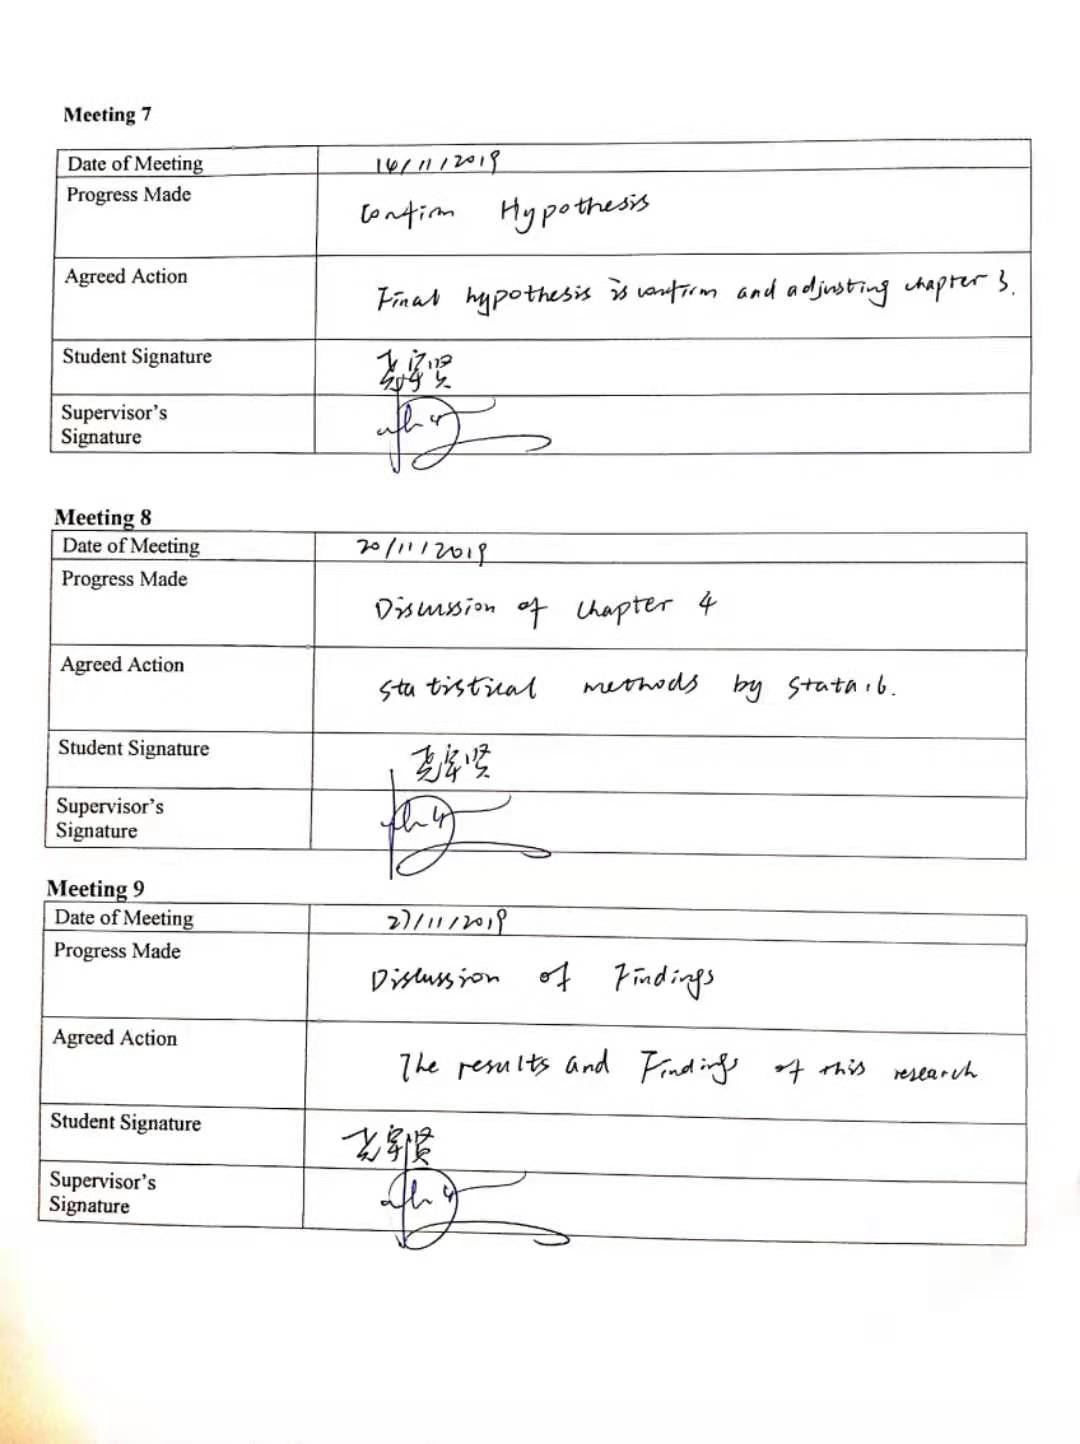 Meeting 7
Date of Meeting 14/11/2019
Progress Made
Confirm Hypothesis
Agreed Action
Final hypothesis is confirm and adjusting chapter 3.
Student Signature
Supervisor's
Signature
Meeting 8
Date of Meeting 20/11/2019
Progress Made
Discussion of chapter 4
Agreed Action
Statistical methods by Stata 16.
Student Signature
Supervisor's
Signature
Meeting 9
Date of Meeting 27/11/2019
Progress Made
Discussion of Findings
Agreed Action
The results and Findings of this research
Student Signature
Supervisor's
Signature